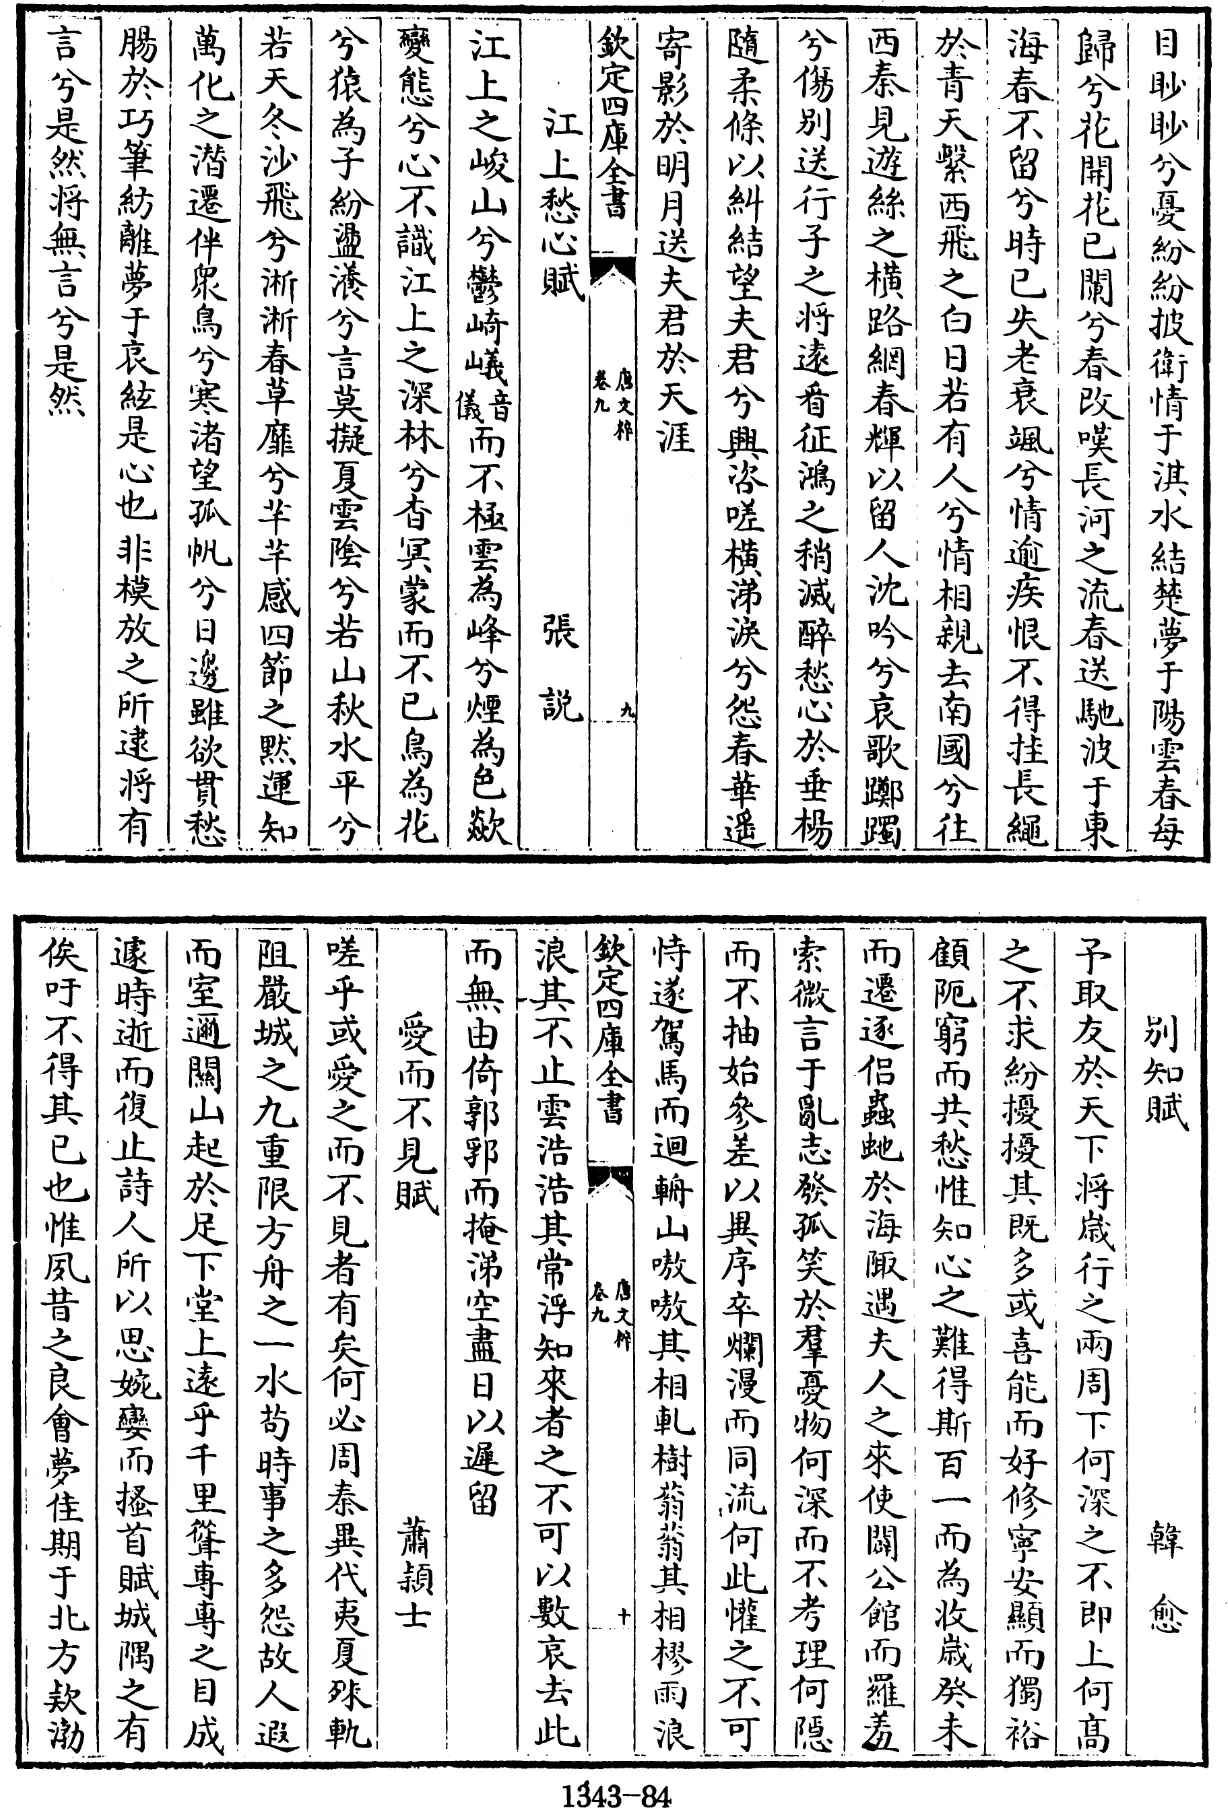 目眇眇兮憂紛紛披衛情于淇水結楚夢于陽雲春每
歸兮花開花已闌兮春改嘆長河之流春送馳波于東
海春不留兮時已失老衰颯兮情逾疾恨不得挂長繩
於青天繫西飛之白日若有人兮情相親去南國兮往
西秦見遊絲之橫路網春輝以留人沈吟兮哀歌躑躅
兮傷别送行子之將遠看征鴻之稍滅醉愁心於垂楊
隨柔條以糾結望夫君兮興咨嗟橫涕淚兮怨春華遥
寄影於明月送夫君於天涯
欽定四庫全書
唐文粹
卷九
九
江上愁心賦 張説
江上之峻山兮鬱崎㠖音儀而不極雲為峰兮煙為色歘
變態兮心不識江上之深林兮杳冥蒙而不已鳥為花
兮猿為子紛盪瀁兮言莫擬夏雲陰兮若山秋水平兮
若天冬沙飛兮淅淅春草靡兮芊芊感四節之默運知
萬化之潛遷伴衆鳥兮寒渚望孤帆兮日邊雖欲貫愁
腸於巧筆紡離夢于哀絃是心也非模放之所逮將有
言兮是然將無言兮是然
别知賦 韓愈
予取友於天下將嵗行之兩周下何深之不即上何髙
之不求紛擾擾其既多或喜能而好修寧安顯而獨裕
顧阨窮而共愁惟知心之難得斯百一而為收嵗癸未
而遷逐侣蟲虵於海陬遇夫人之來使闢公館而羅羞
索微言于亂志發孤笑於羣憂物何深而不考理何隱
而不抽始參差以異序卒爛漫而同流何此懽之不可
恃遂駕馬而迴輈山嗷嗷其相軋樹蓊蓊其相樛雨浪
欽定四庫全書
唐文粹
卷九
十
浪其不止雲浩浩其常浮知來者之不可以數哀去此
而無由倚郭郛而掩涕空盡日以遲留
愛而不見賦 蕭頴士
嗟乎或愛之而不見者有矣何必周秦異代夷夏殊軌
阻嚴城之九重限方舟之一水茍時事之多怨故人遐
而室邇關山起於足下堂上遠乎千里聳專專之目成
遽時逝而復止詩人所以思婉孌而搔首賦城隅之有
俟吁不得其已也惟夙昔之良會夢佳期于北方欵渤
1343-84